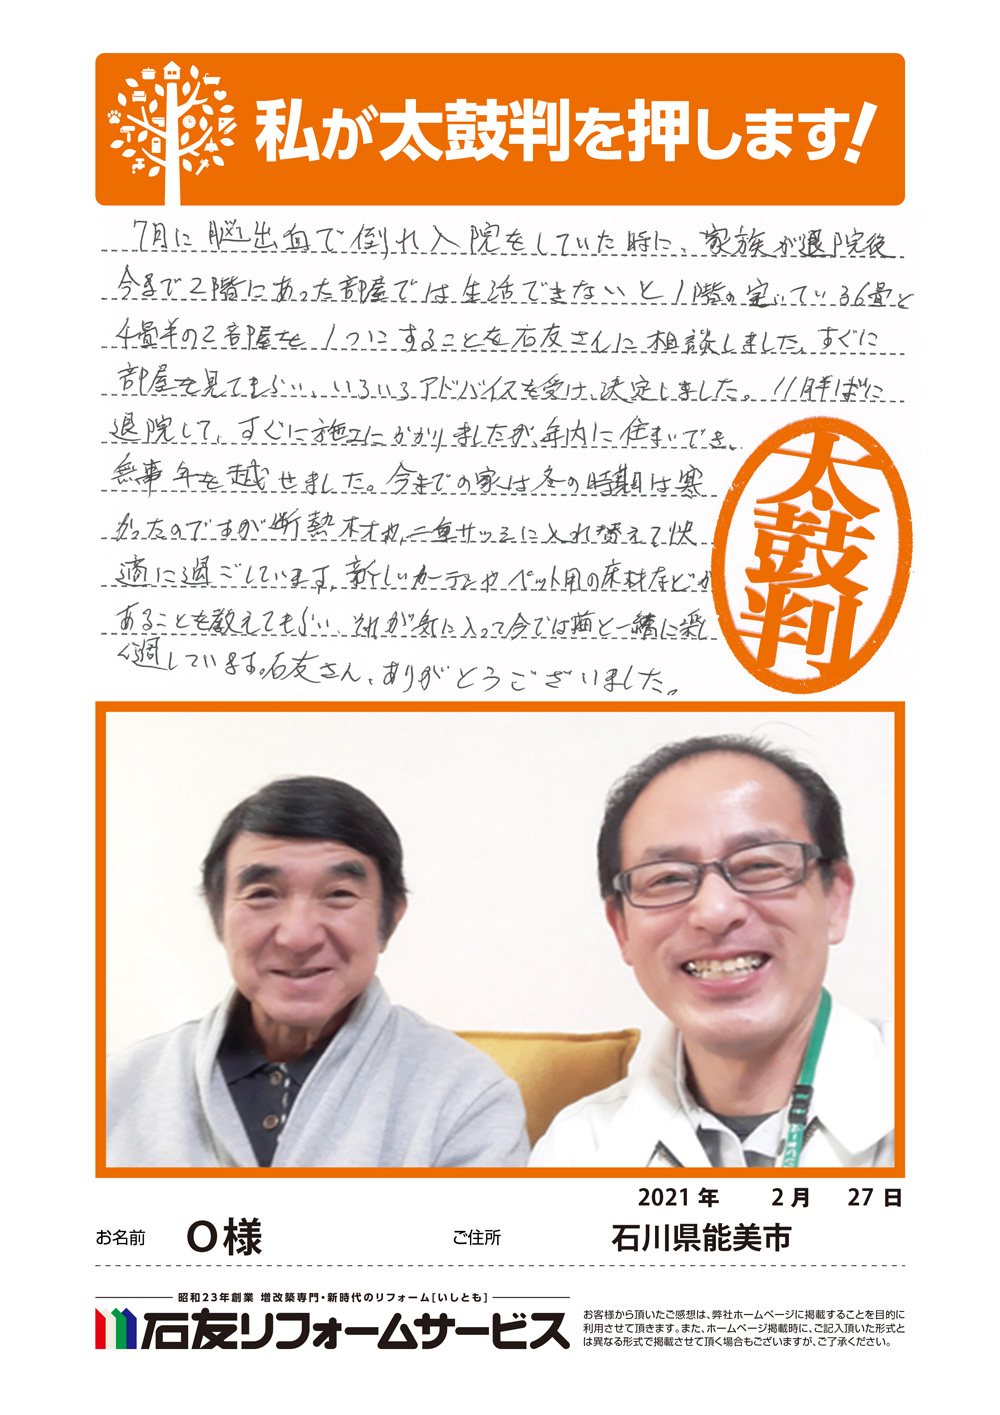 私が太鼓判を押します!
7月に脳出血で倒れ入院をしていた時に、家族が退院後
今まで2階にあった部屋では生活できないと1階の空いている6畳と
4畳半の2部屋を1つにすることを石友さんに相談しました。すぐに
部屋を見てもらい、いろいろアドバイスを受け、決定しました。11月半ばに
退院して、すぐに施工にかかりましたが、年内に住まいでき、
無事年を越せました。今までの家は冬の時期は寒
かったのですが断熱材や、二重サッシに入れ替えて快
適に過ごしています。新しいカーテンやペット用の床材などが
あることを教えてもらい、それが気に入って今では猫と一緒に楽し
く過しています。石友さん、ありがとうございました。
太鼓判
2021年 2月 27日
お名前 O様 ご住所 石川県能美市
昭和23年創業 増改築専門・新時代のリフォーム[いしとも]
石友リフォームサービス
お客様から頂いたご感想は、弊社ホームページに掲載することを目的に
利用させて頂きます。また、ホームページ掲載時に、ご記入頂いた形式と
は異なる形式で掲載させて頂く場合もございますが、ご了承ください。